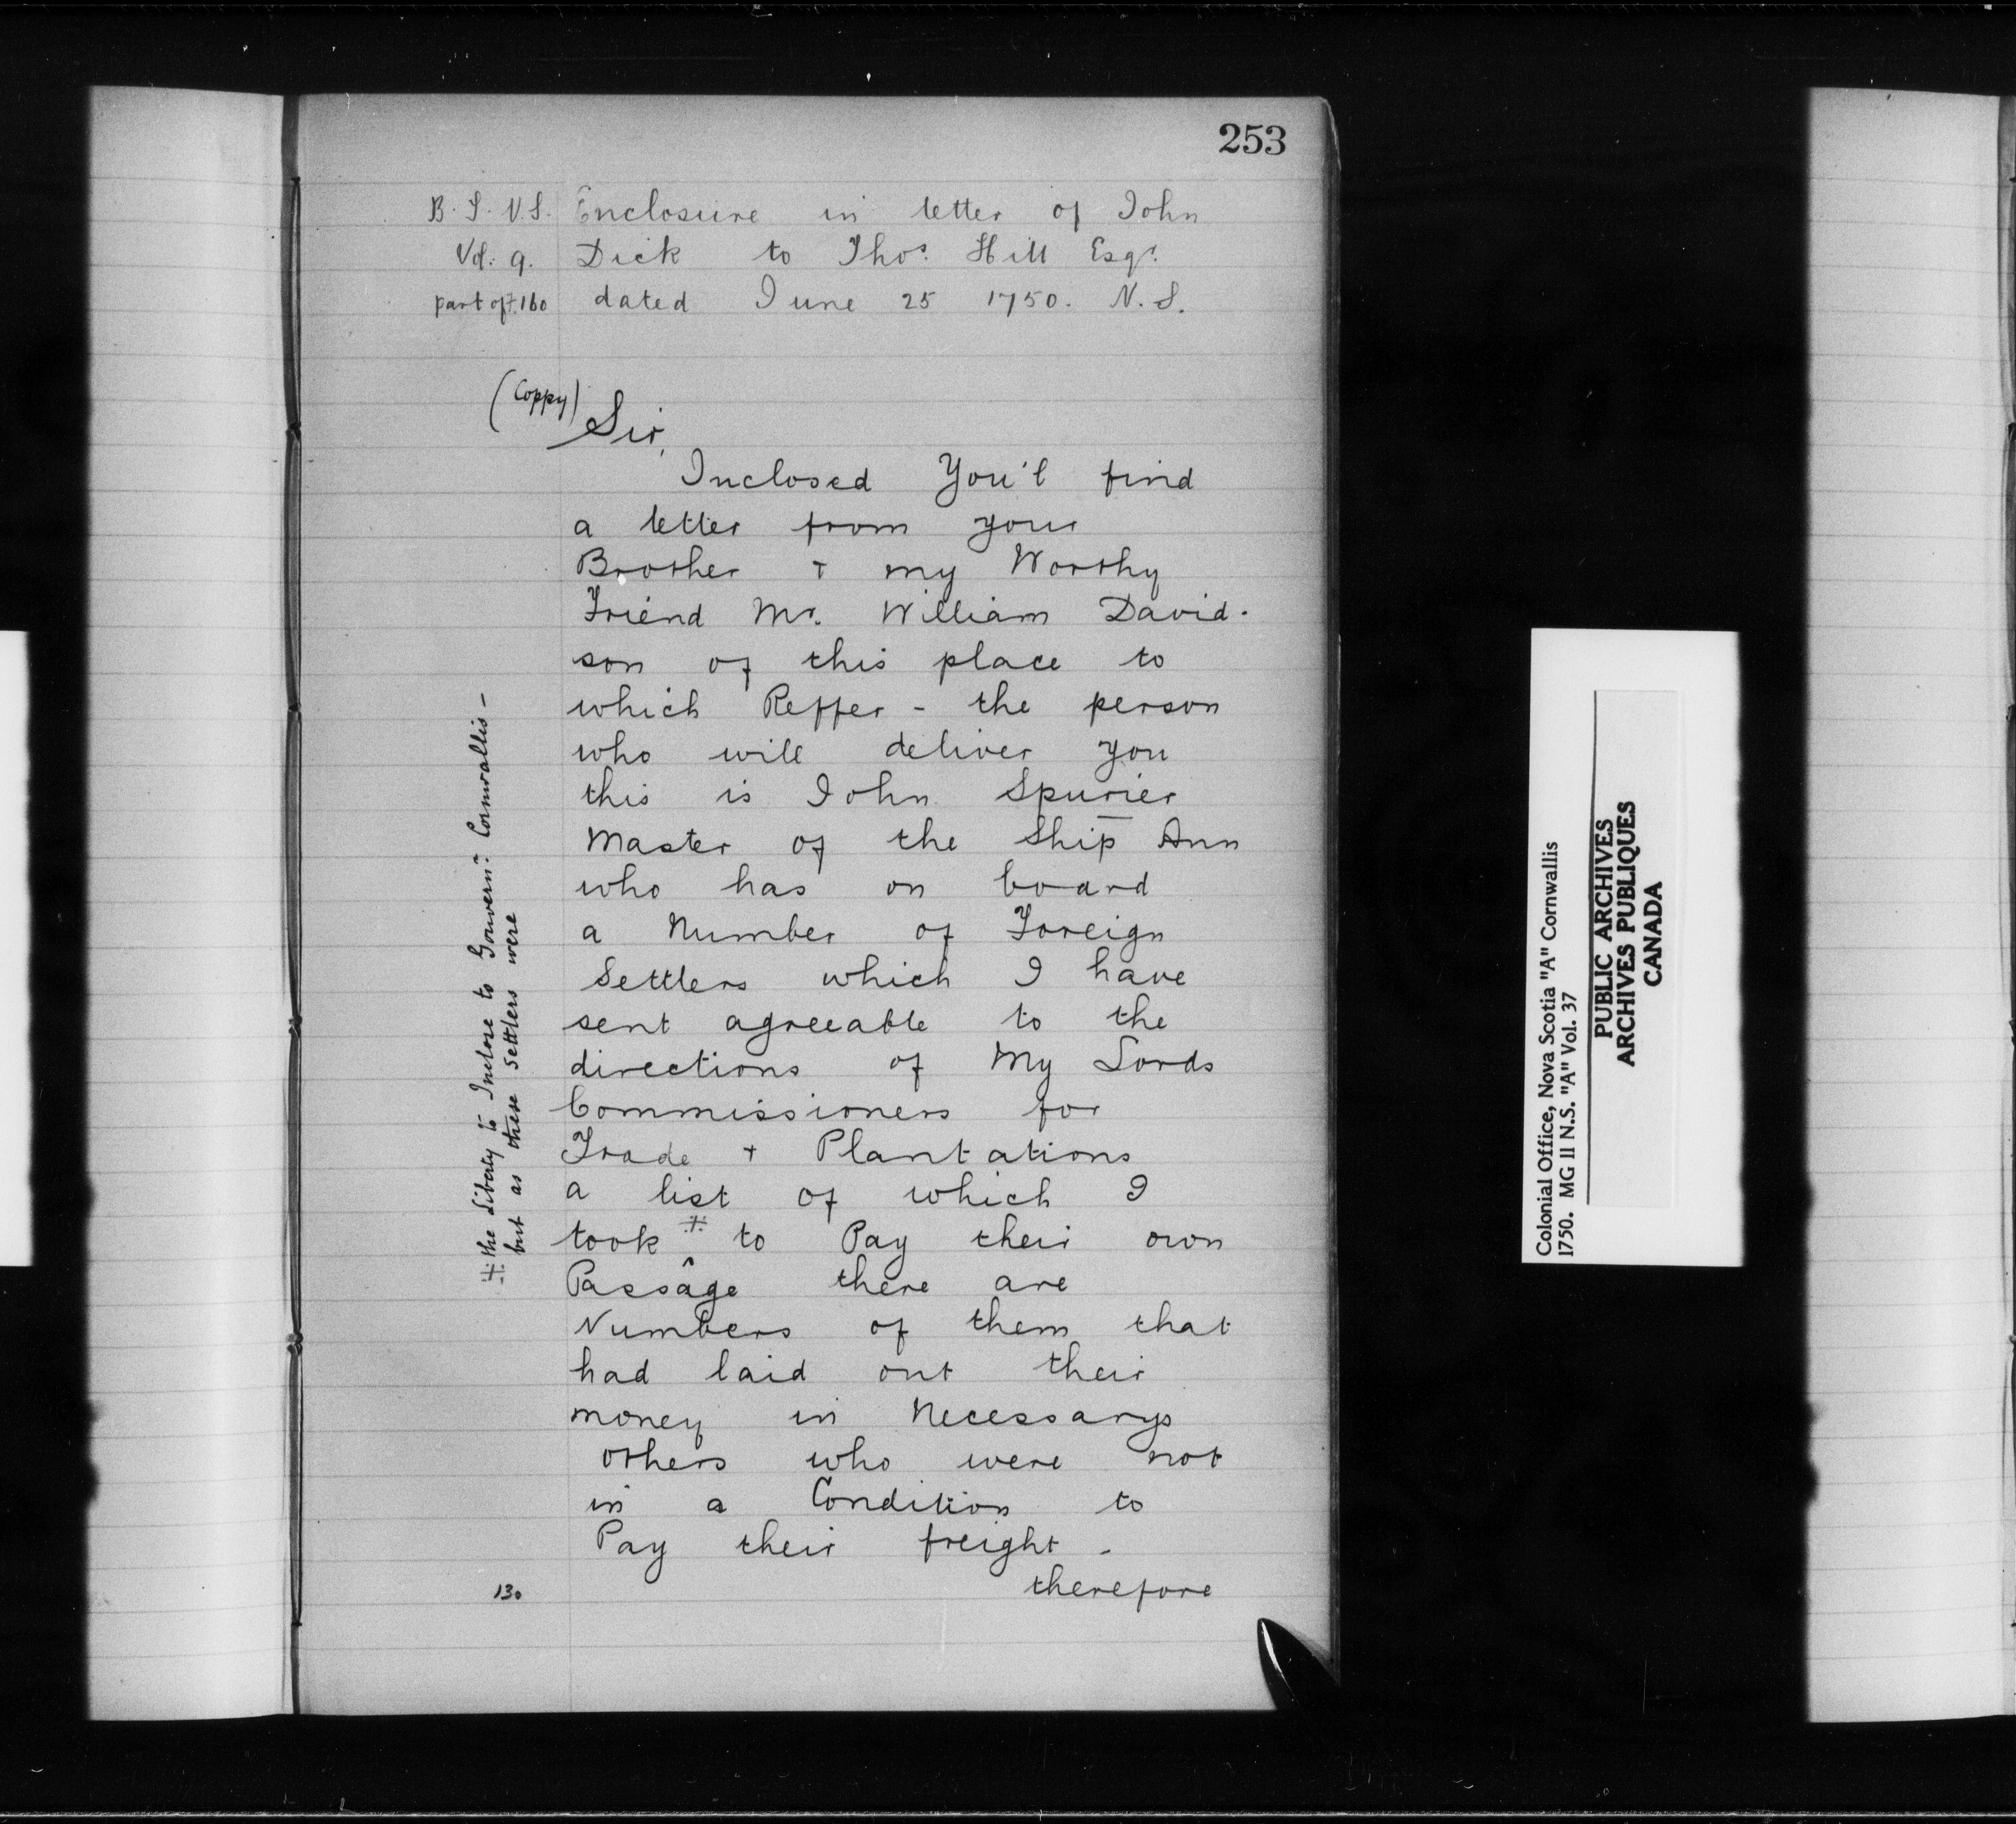 253
B.T. N.S. Enclosure in letter of John
Vol. 9. Dick to Thos. Hill Esqr.
part of f. 160 dated June 25 1750. N.S.
(Coppy)
Sir,
Inclosed You'l find
a letter from your
Brother + my Worthy
Friend Mr. William David-
son of this place to
which Reffer - the person
who will deliver you
this is John Spurier
Master of the Ship Ann
who has on board
a Number of Foreign
Settlers which I have
sent agreeable to the
directions of My Lords
Commissioners for
Trade + Plantations
a list of which I
took ⧺ to Pay their own
Passage there are
Numbers of them that
had laid out their
money in Necessarys
others who were not
in a Condition to
Pay their freight -
therefore
130
⧺ the Liberty to Inclose to Governr. Cornwallis -
but as these Settlers were
Colonial Office, Nova Scotia "A" Cornwallis
1750. MG II N.S. "A" Vol. 37
PUBLIC ARCHIVES
ARCHIVES PUBLIQUES
CANADA